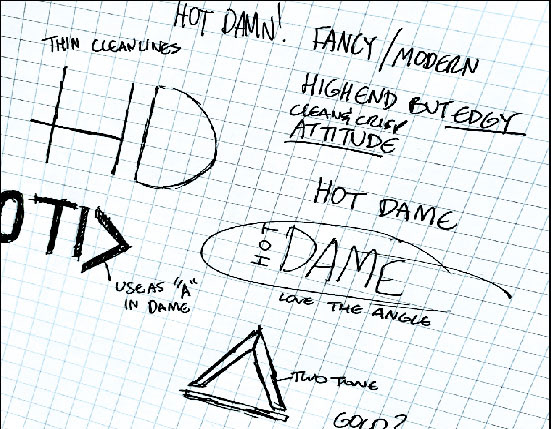 HOT DAMN!
FANCY/MODERN
THIN CLEAN LINES
HIGH END BUT EDGY
CLEAN & CRISP
ATTITUDE
HD
HOT DAME
OTI>
HOT
DAME
LOVE THE ANGLE
USE AS "A"
IN DAME
TWO TONE
GOLD?